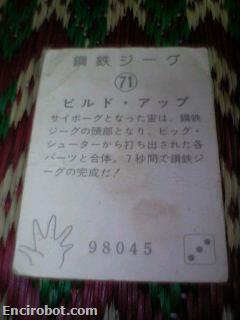 鋼鉄ジーグ
71
ビルド・アップ
サイボーグとなった宙は、鋼鉄
ジーグの頭部となり、ビッグ・
シューターから打ち出された各
パーツと合体。7秒間で鋼鉄ジ
ーグの完成だ!
98045
Encirobot.com